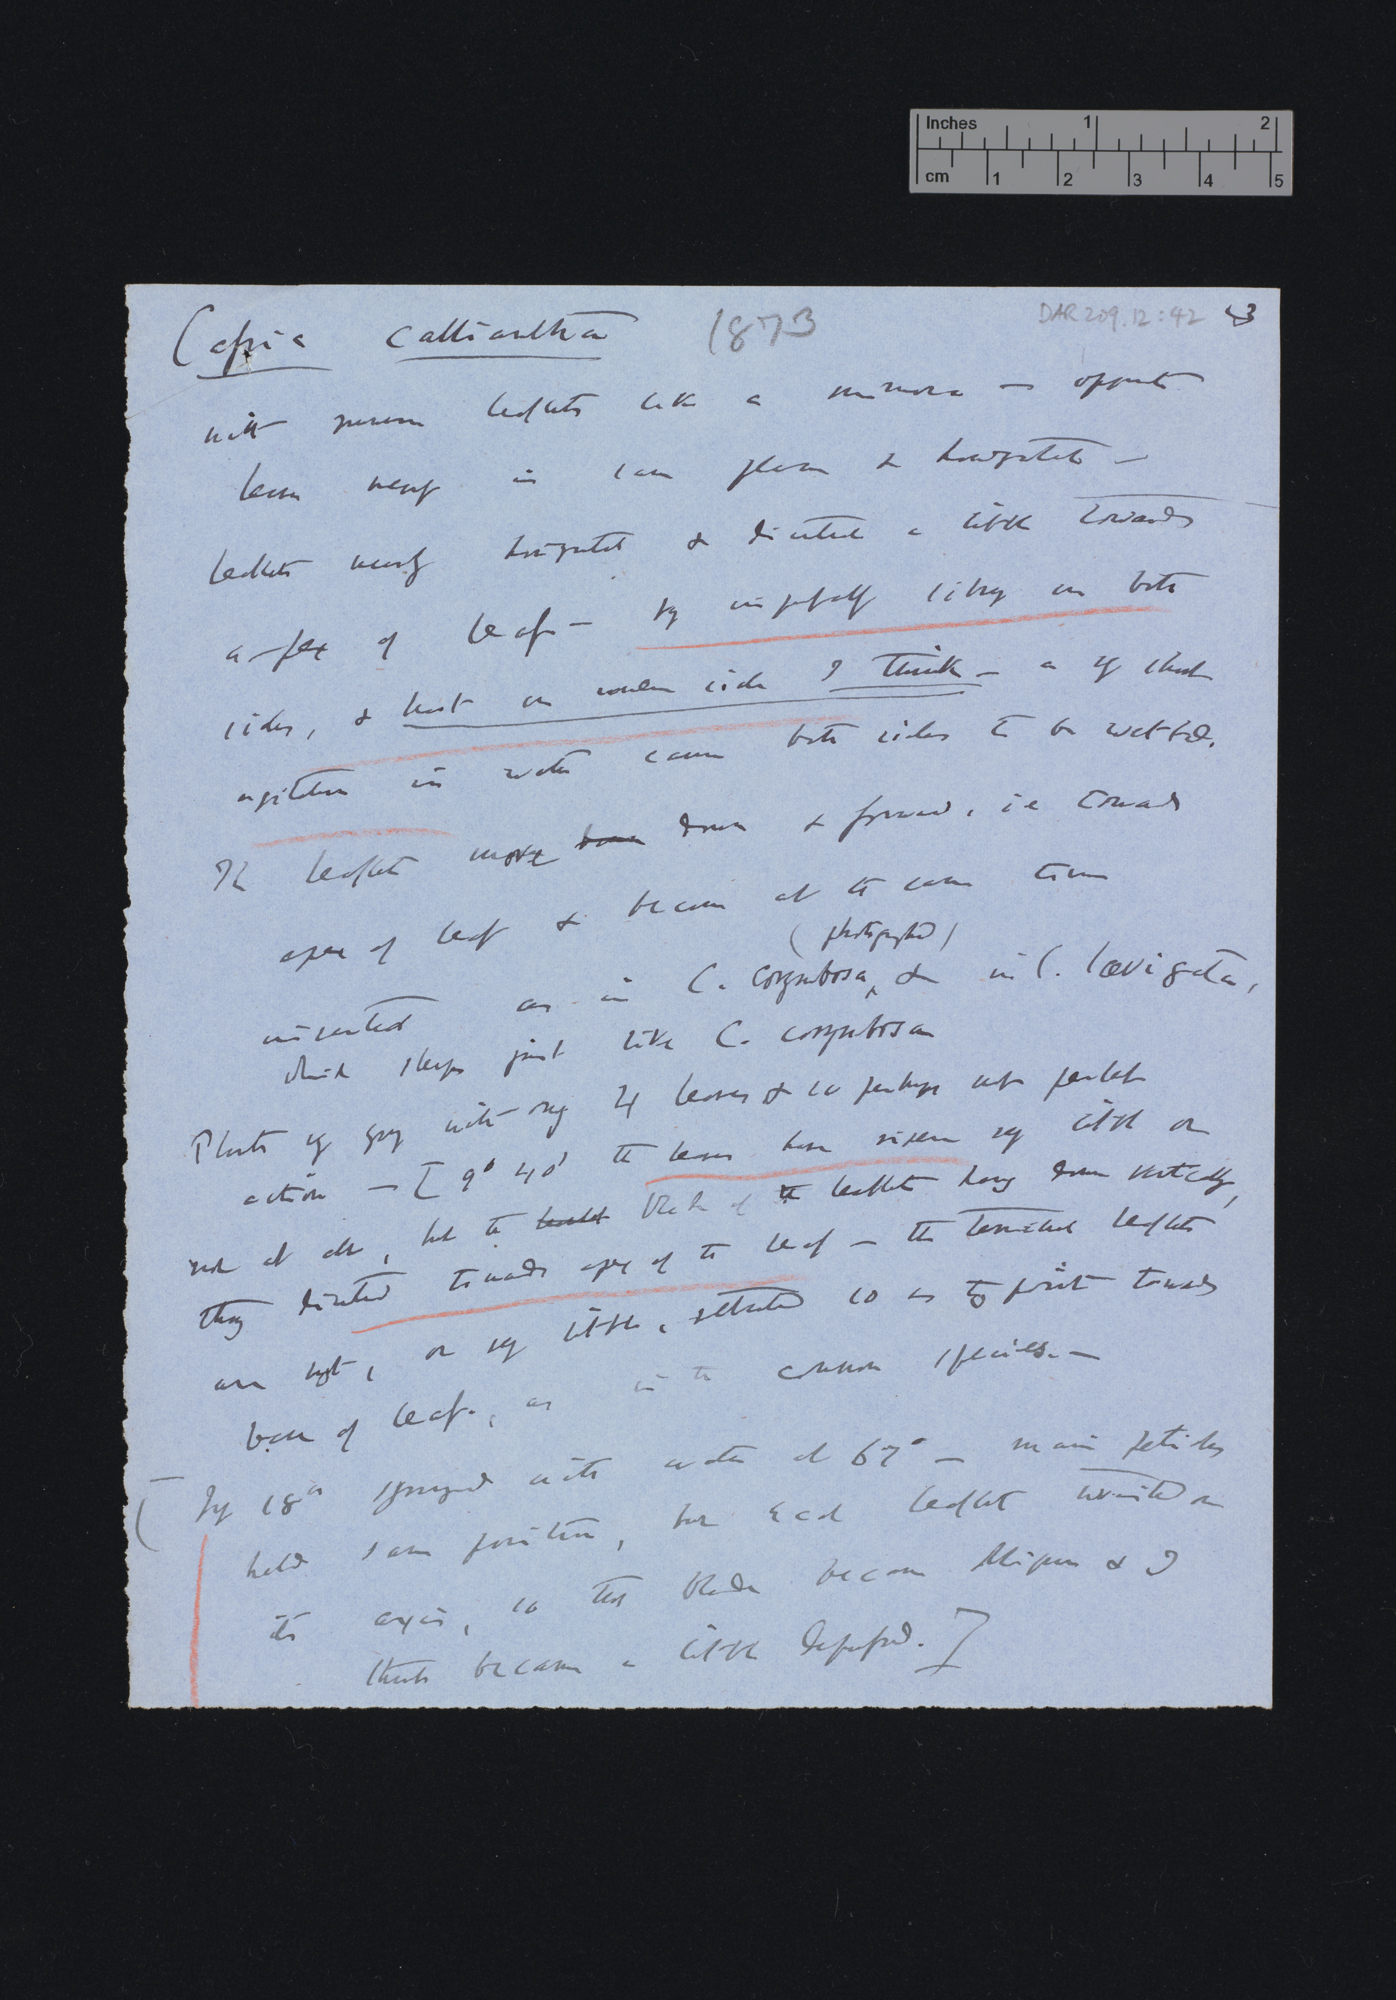 Inches 1 2
cm 1 2 3 4 5
Cassia calliantha 1873 DAR 209.12:42 43
with numerous leaflets like a mimosa — opposite
leaves nearly in same plane & horizontal —
leaflets nearly horizontal & directed a little towards
apex of leaf — vy imperfectly silvery on both
sides, & least on under side I think — a vy short
agitation in water causes both sides to be wetted.
The leaflets move down down & forward, ie towards
apex of leaf & become at the same time
(photographed)
inverted as in C. corymbosa, & in C. lævigata,
which sleeps just like C. corymbosa
Plants vy young with only 4 leaves & so perhaps not perfect
action — [ 9° 40' the leaves have risen vy little or
not at all, but the leaflet blades of the leaflets hang down vertically,
they directed towards apex of the leaf — the terminal leaflets
are not, or vy little, reflected so as to point towards
base of leaf, as in the common species. —
[ July 18th syringed with water at 67° — main petioles
held same position, but each leaflet twisted on
its axis, so that blades became & I
think became a little depressed. ]